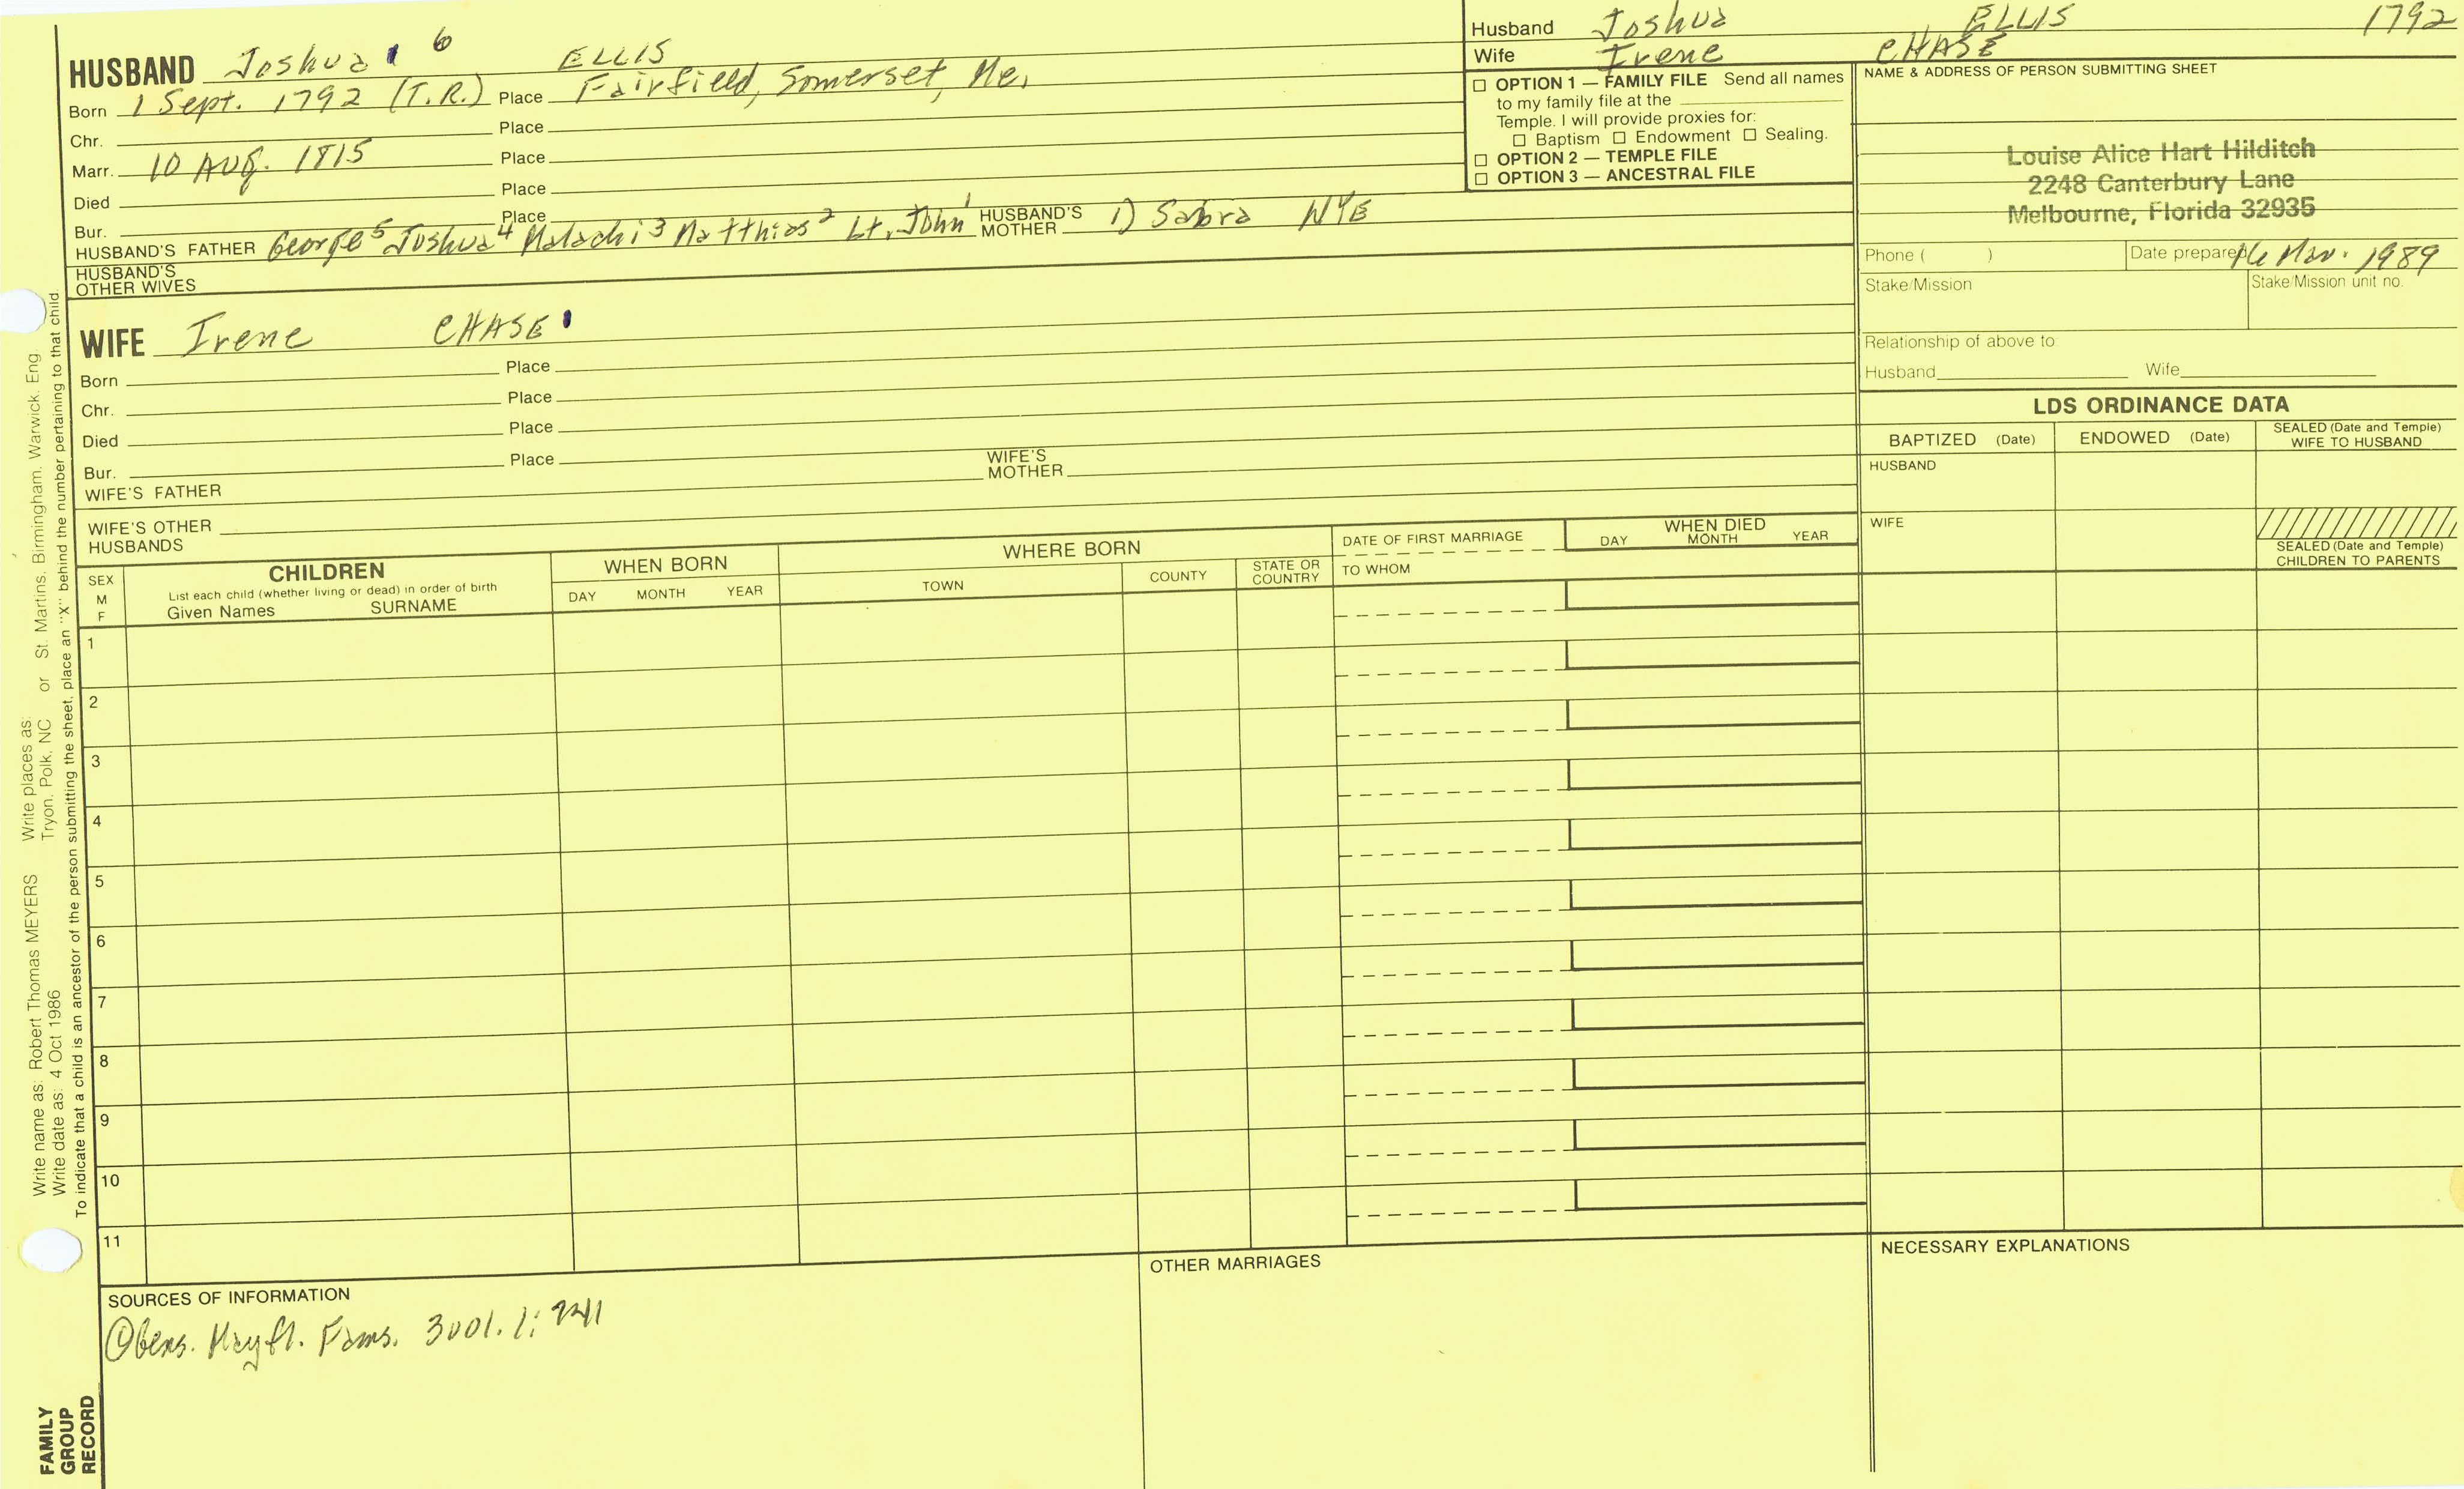 Husband Joshua ELLIS 1792
Wife Irene CHASE
HUSBAND Joshua 6 ELLIS
Born 1 Sept. 1792 (T.R.) Place Fairfield, Somerset, Me.
Chr. Place
Marr. 10 AUG. 1815 Place
Died Place
Bur. Place
HUSBAND'S FATHER George 5 Joshua 4 Malachi 3 Matthias 2 Lt. John 1 HUSBAND'S MOTHER 1) Sabra NYE
HUSBAND'S OTHER WIVES
☐ OPTION 1 — FAMILY FILE Send all names
to my family file at the
Temple. I will provide proxies for:
☐ Baptism ☐ Endowment ☐ Sealing.
☐ OPTION 2 — TEMPLE FILE
☐ OPTION 3 — ANCESTRAL FILE
NAME & ADDRESS OF PERSON SUBMITTING SHEET
Louise Alice Hart Hilditch
2248 Canterbury Lane
Melbourne, Florida 32935
Phone ( ) Date prepared 16 Mar. 1989
Stake/Mission Stake/Mission unit no.
Relationship of above to:
Husband Wife
WIFE Irene CHASE
Born Place
Chr. Place
Died Place
Bur. Place
WIFE'S FATHER WIFE'S MOTHER
WIFE'S OTHER HUSBANDS
LDS ORDINANCE DATA
BAPTIZED (Date) ENDOWED (Date) SEALED (Date and Temple) WIFE TO HUSBAND
HUSBAND
WIFE
SEALED (Date and Temple) CHILDREN TO PARENTS
SEX M F
CHILDREN
List each child (whether living or dead) in order of birth
Given Names SURNAME
WHEN BORN
DAY MONTH YEAR
WHERE BORN
TOWN COUNTY STATE OR COUNTRY
DATE OF FIRST MARRIAGE
TO WHOM
WHEN DIED
DAY MONTH YEAR
1
2
3
4
5
6
7
8
9
10
11
SOURCES OF INFORMATION
Mayfl. Fams.
OTHER MARRIAGES
NECESSARY EXPLANATIONS
Write name as: Robert Thomas MEYERS Write places as: Tryon, Polk, NC or St. Martins, Birmingham, Warwick, Eng.
Write date as: 4 Oct 1986
To indicate that a child is an ancestor of the person submitting the sheet, place an "X" behind the number pertaining to that child.
FAMILY
GROUP
RECORD